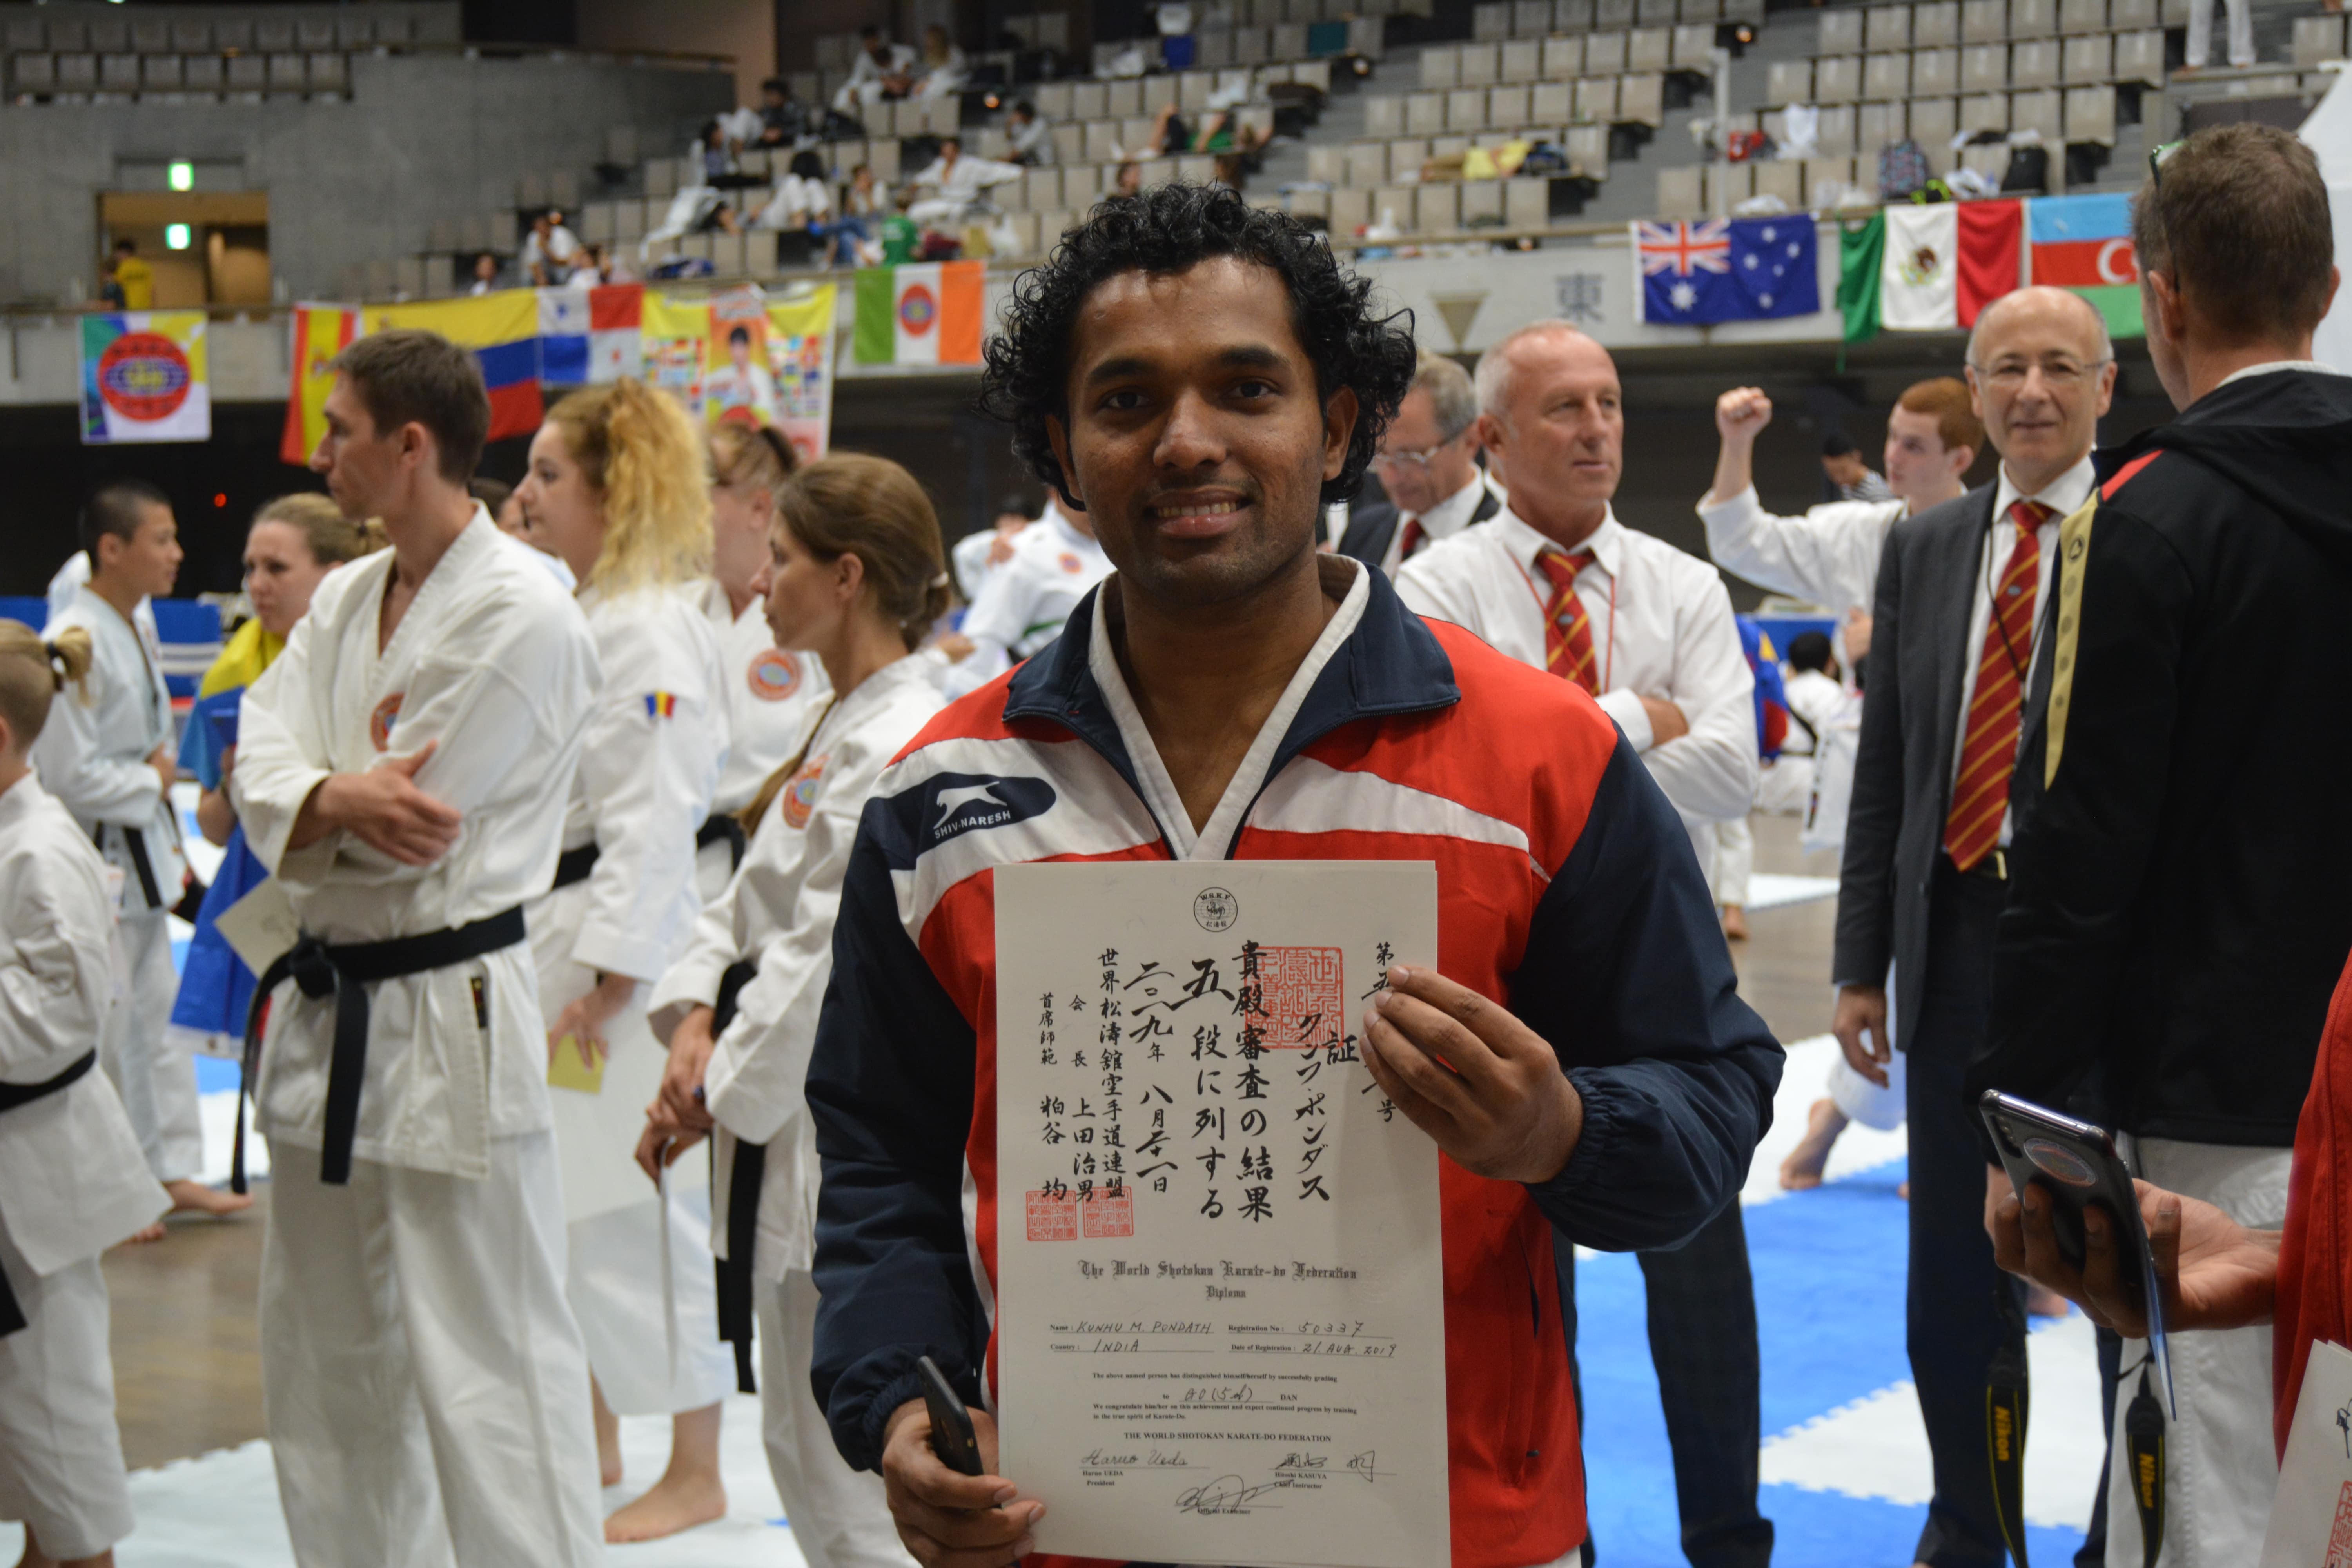 東
SHIV-NARESH
W.S.K.F.
第五
号
証
クンフ・ポンダス
貴殿審査の結果
五段に列する
二〇一九年八月二十一日
世界松濤舘空手道連盟
会長 上田治男
首席師範 粕谷均
The World Shotokan Karate-do Federation
Diploma
Name : KUNHU M. PONDATH Registration No : 50337
Country : INDIA Date of Registration : 21. AUG. 2019
The above named person has distinguished himself/herself by successfully grading
to GO (5th) DAN
We congratulate him/her on this achievement and expect continued progress by training
in the true spirit of Karate-Do.
THE WORLD SHOTOKAN KARATE-DO FEDERATION
Haruo Ueda
Haruo UEDA
President
Hitoshi KASUYA
Chief Instructor
Official Examiner
Nikon
Nikon